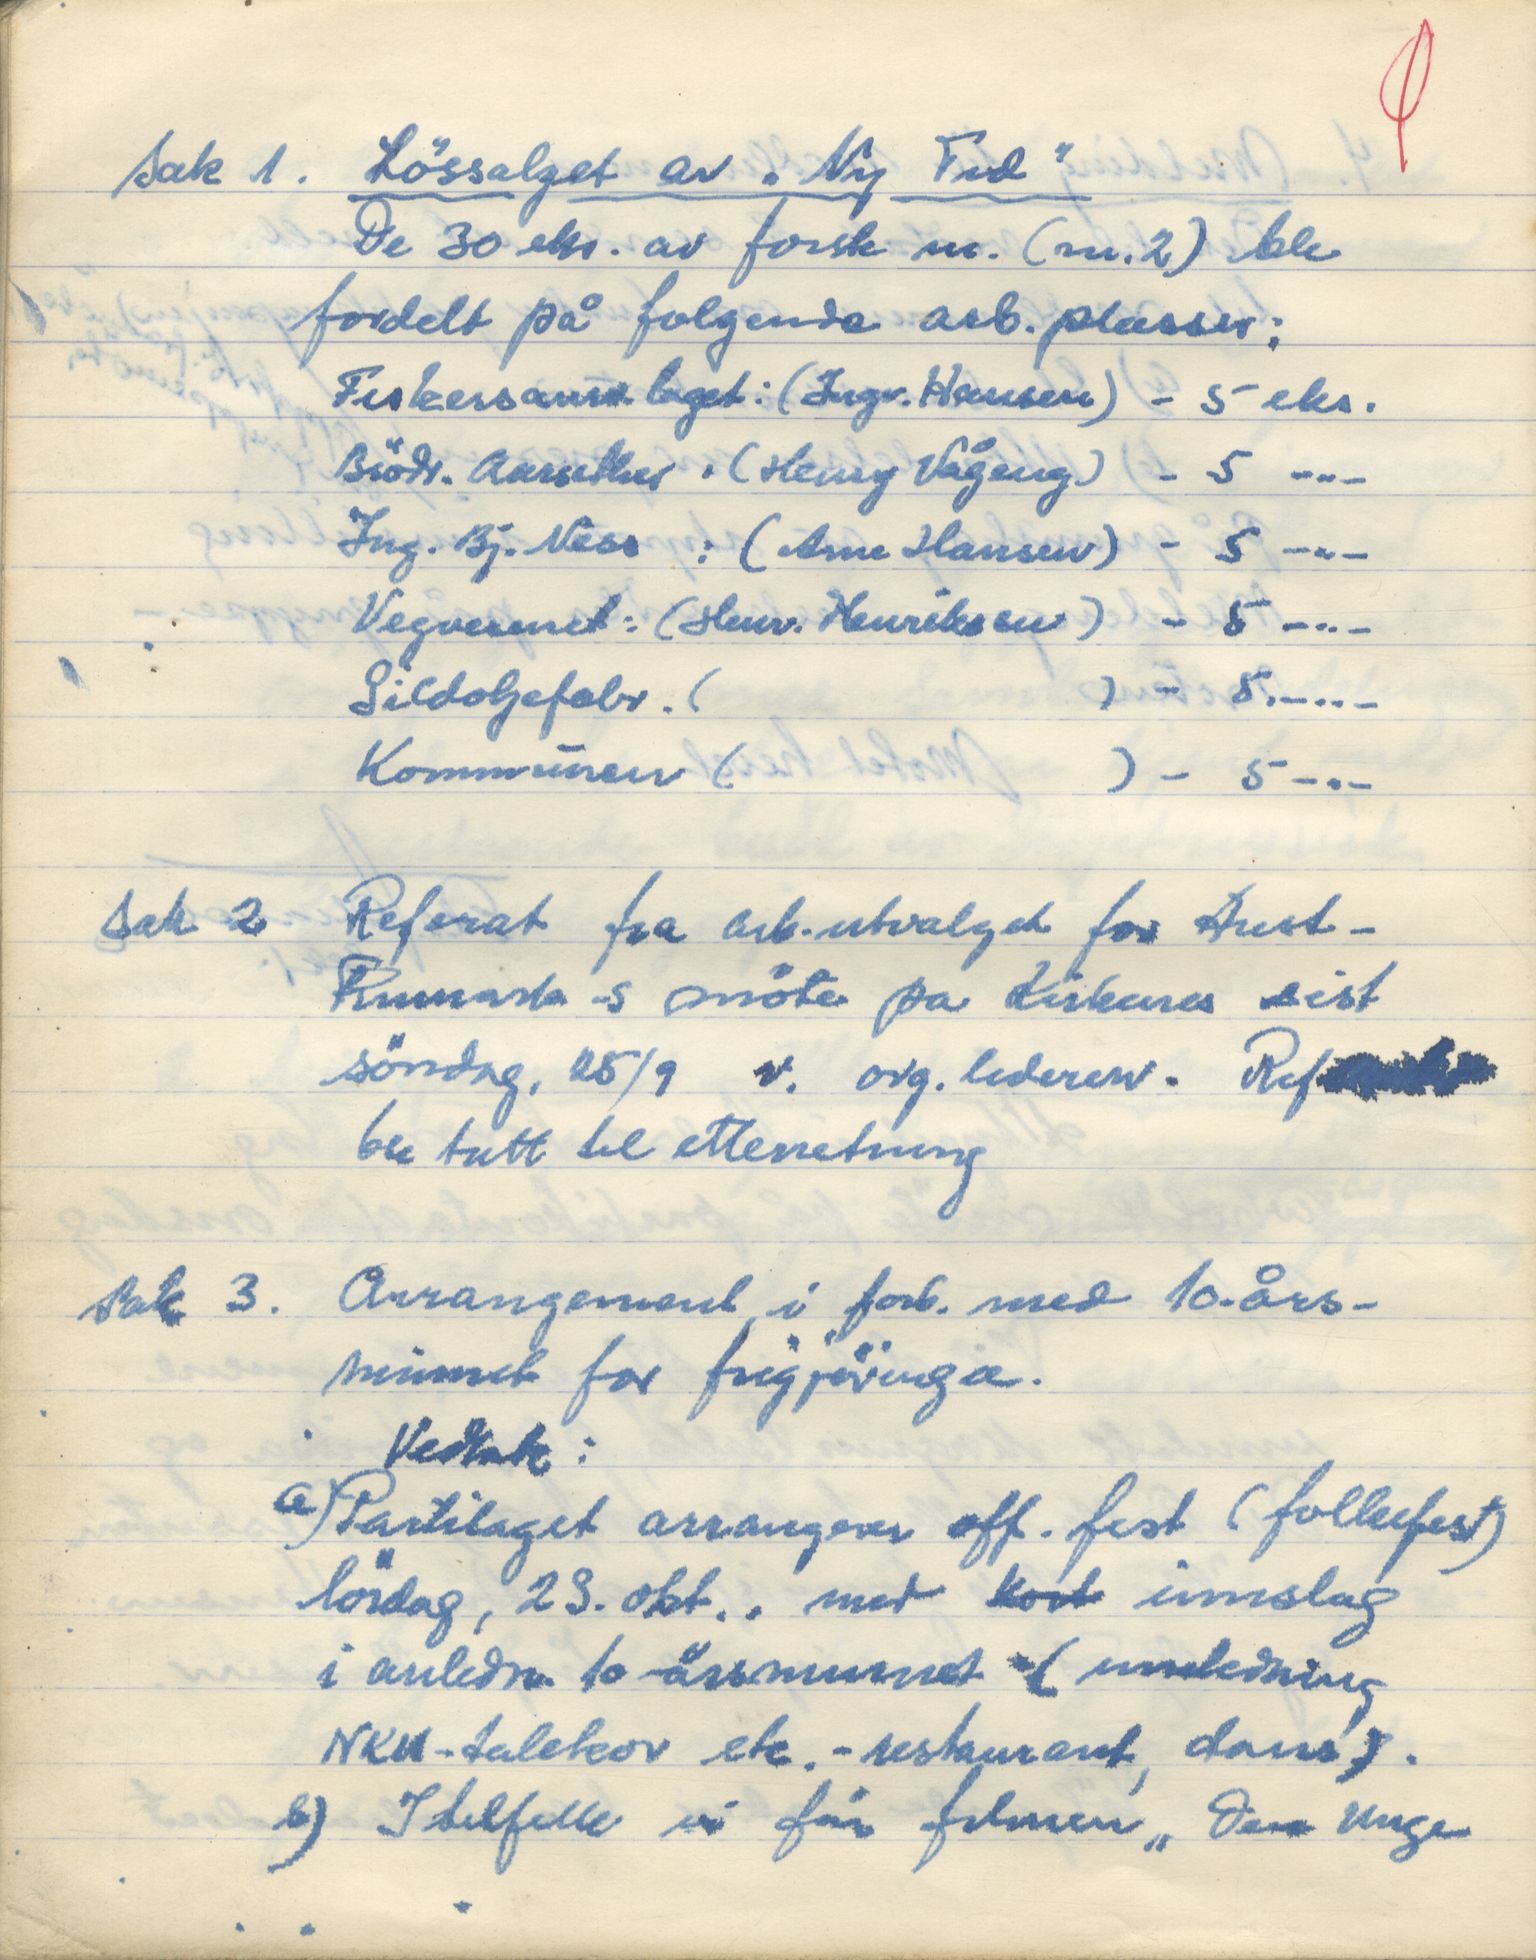 Sak 1. Lössalget av "Ny Tid"
De 30 eks. av första nr. (nr. 2) ble
fordelt på folgende arb. plasser:
Fiskersamvlaget: (Ingv. Hansen) - 5 eks.
Brödr. Aarsether : (Henry Vågeng) - 5 -"-
Ing. Bj. Ness : (Arne Hansen) - 5 -"-
Vegvesenet: (Henr. Henriksen) - 5 -"-
Sildoljefabr. ( ) - 5 -"-
Kommunen ( ) - 5 -"-
Sak 2 Referat fra arb.utvalget for Aust-
Finnmark -s möte på Kirkenes sist
söndag, 25/9 v. org. lederen. Ref.
ble tatt til etterretning
Sak 3. Arrangement i forb. med 10-års-
minnet for frigjöringa.
Vedtak:
a) Partilaget arrangerer off. fest (folkefest)
lördag, 29. okt.. med kort innslag
i anledn. 10-årsminnet (innledning
NKU-talekor etc. - restaurant, dans).
b) I tilfelle vi får filmen "Den Unge